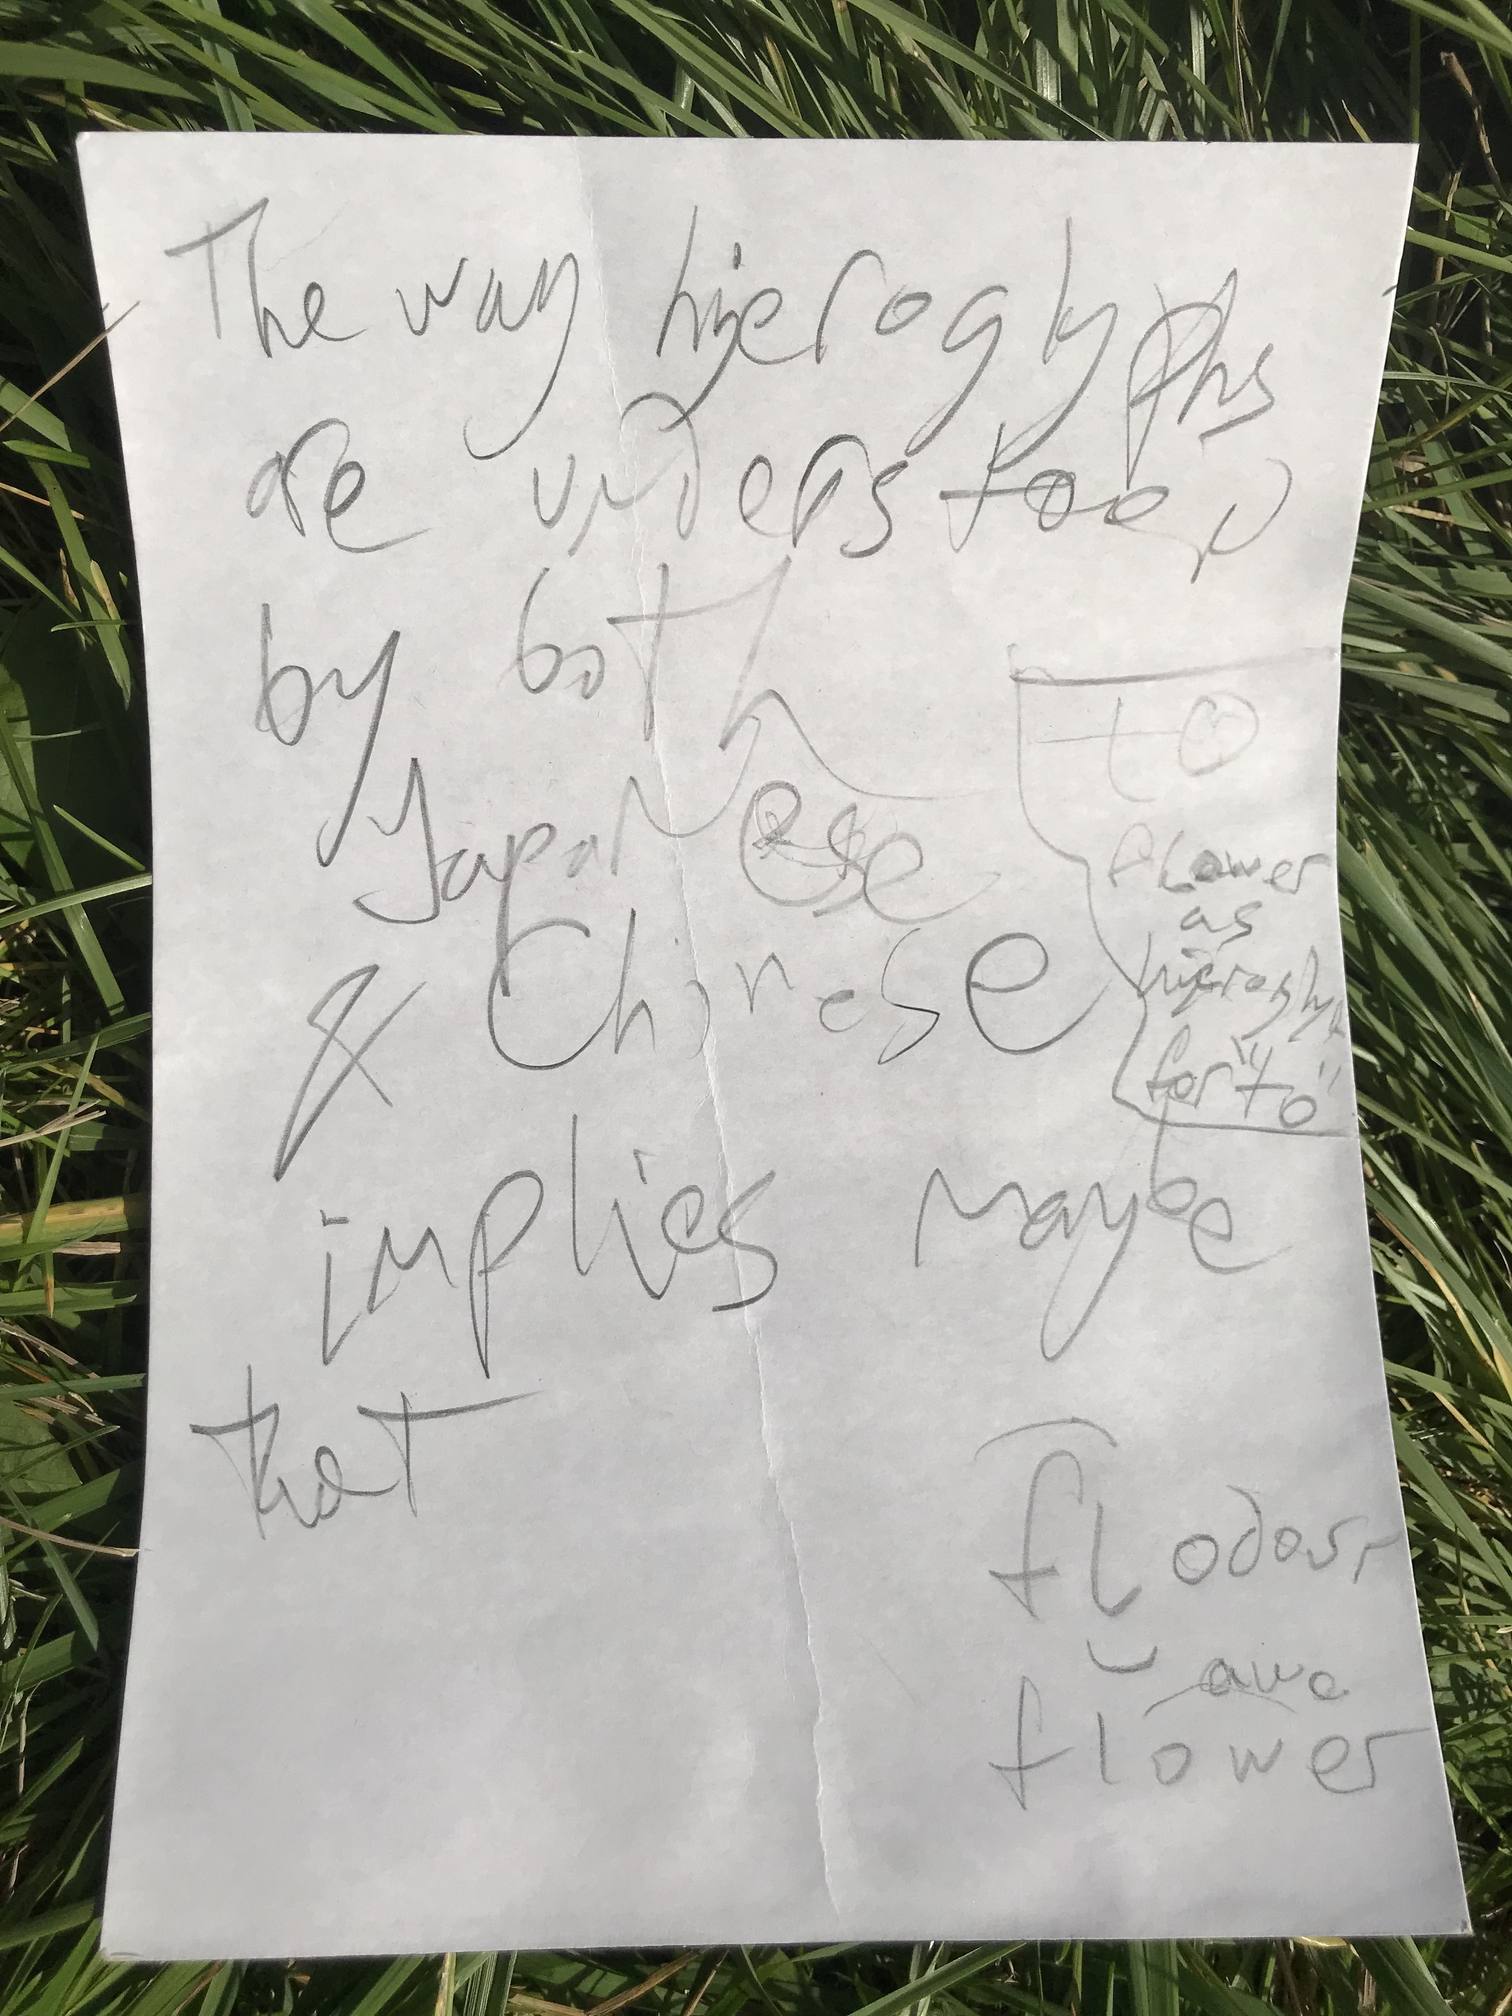 The way hieroglyphs
are understood
by both
Japanese
& Chinese
implies maybe
that
to
flower
as
for "to"
flodour
awe
flower